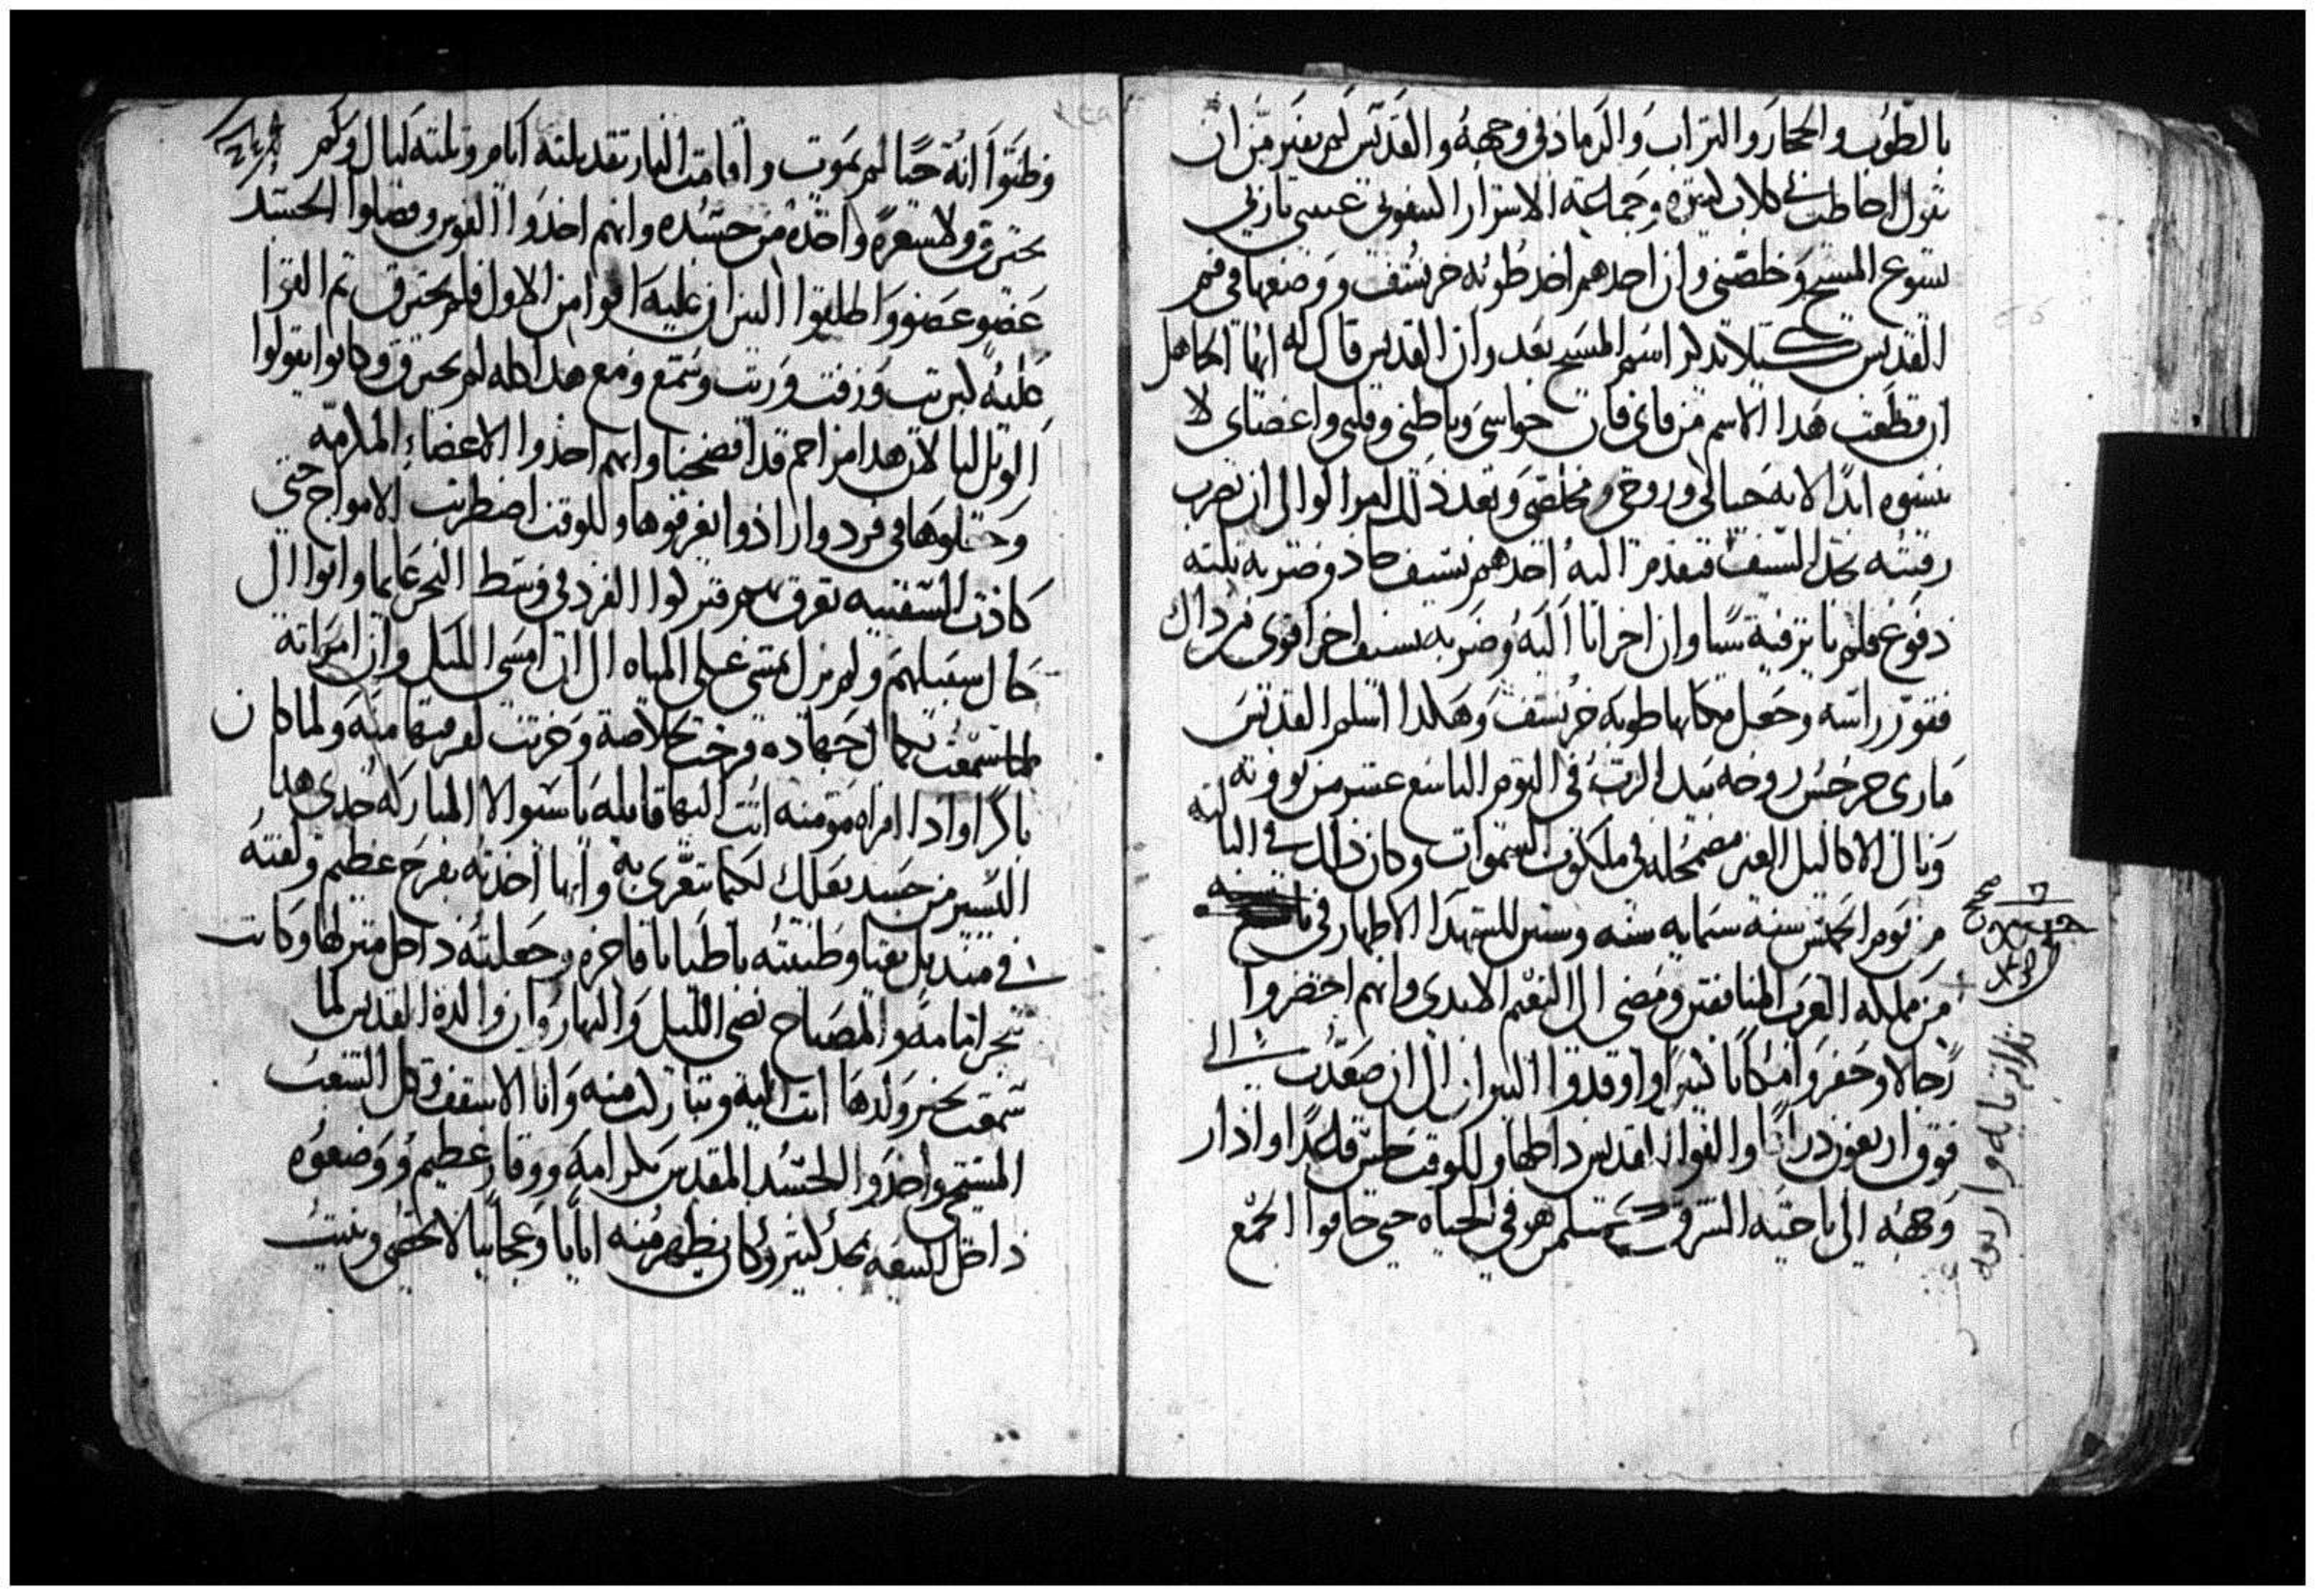 بالطوب والحجار والتراب والرماد في وجهه والقديس لم يفتر من ان
يقول احاطت بي كلاب كتيره وجماعة الاشرار اكتنفوني عيني يا ربي
يسوع المسيح وخلصني وان احدهم اخد طوبه خرشف ووضعها في فم
القديس كيلا يدكر اسم المسيح بعد وان القديس قال له ايها الجاهل
ان قطعت هدا الاسم من فاي فان حواسي وباطني وقلبي واعضاي لا
ينسوه ابدا لانه حياتي وروحي ومخلصي وبعد دلك امر الوالي ان تضرب
رقبته بحد السيف فتقدم اليه احدهم بسيف حاد وضربه تلته
دفوع فلم ياتر فيه شيا وان اخر اتا اليه وضربه بسيف اخر اقوى من داك
فقور راسه وجعل مكانها طوبه خرشف وهكدا اسلم القديس
ماري جرجس روحه بيد الرب في اليوم التاسع عشر من بوونه
ونال الاكاليل الغير مضمحله في ملكوت السموات وكان دلك في التالته
من يوم الخميس سنة ستمايه سنه وستين للشهدا الاطهار في
من مملكه العرب المنافقين ومضى الى النعيم الابدي وانهم احضروا
رجالا وحفروا مكانا كبيرا واوقدوا النيران الى ان صعدت الى
فوق اربعون دراعا والقوا القديس داخلها وللوقت جلس قاعدا وادار
وجهه الى ناحية الشرق كمتل من هو في الحياه حتى خافوا الجمع
تلاتمايه واربعه
وظنوا انه حيا لم يموت واقامت النار تقد تلته ايام وتلته ليال ولم
يحترق ولا شعرة واحدة من جسده وانهم اخدوا الفوس وفصلوا الجسد
عضو عضو واطلقوا النيران عليه اقوا من الاول فلم يحترق تم القوا
عليه كبريت وزفت وزيت وشمع ومع هدا كله لم يحترق وكانوا يقولوا
الويل لنا لان هدا مزاحم قد افضحنا وانهم اخدوا الاعضاء الملامه
وحملوها في فرد وارادوا يغرقوها وللوقت اضطربت الامواج حتى
كادت السفينه تغرق بهم فتركوا الفرد في وسط البحر عايما واتوا الى
حال سبيلهم ولم يزل يمشي على المياه الى ان امسى الليل وان امراته
لما سمعت بكمال جهاده فرحت بخلاصة وحزنت لفرقتها منه ولما كان
باكرا وادا امراه مومنه اتت اليها قايله يا ستوالا المباركه خدي هدا
اليسير من جسد بعلك لكيما تتعزي به وانها اخدته بفرح عظيم ولفته
في منديل نقيا وطيبته باطيابا فاخره وجعلته داخل منزلها وكانت
تبخر امامه والمصباح تضي الليل والنهار وان والدة القديس لما
سمعت بخبر ولدها اتت اليه وتباركت منه واتا الاسقف وكل الشعب
المسيحي واخدوا الجسد المقدس بكرامه ووقار عظيم ووضعوه
داخل البيعه بمجد كتير وكان يظهر منه اياتا وعجايبا لا تحصى وبنيت